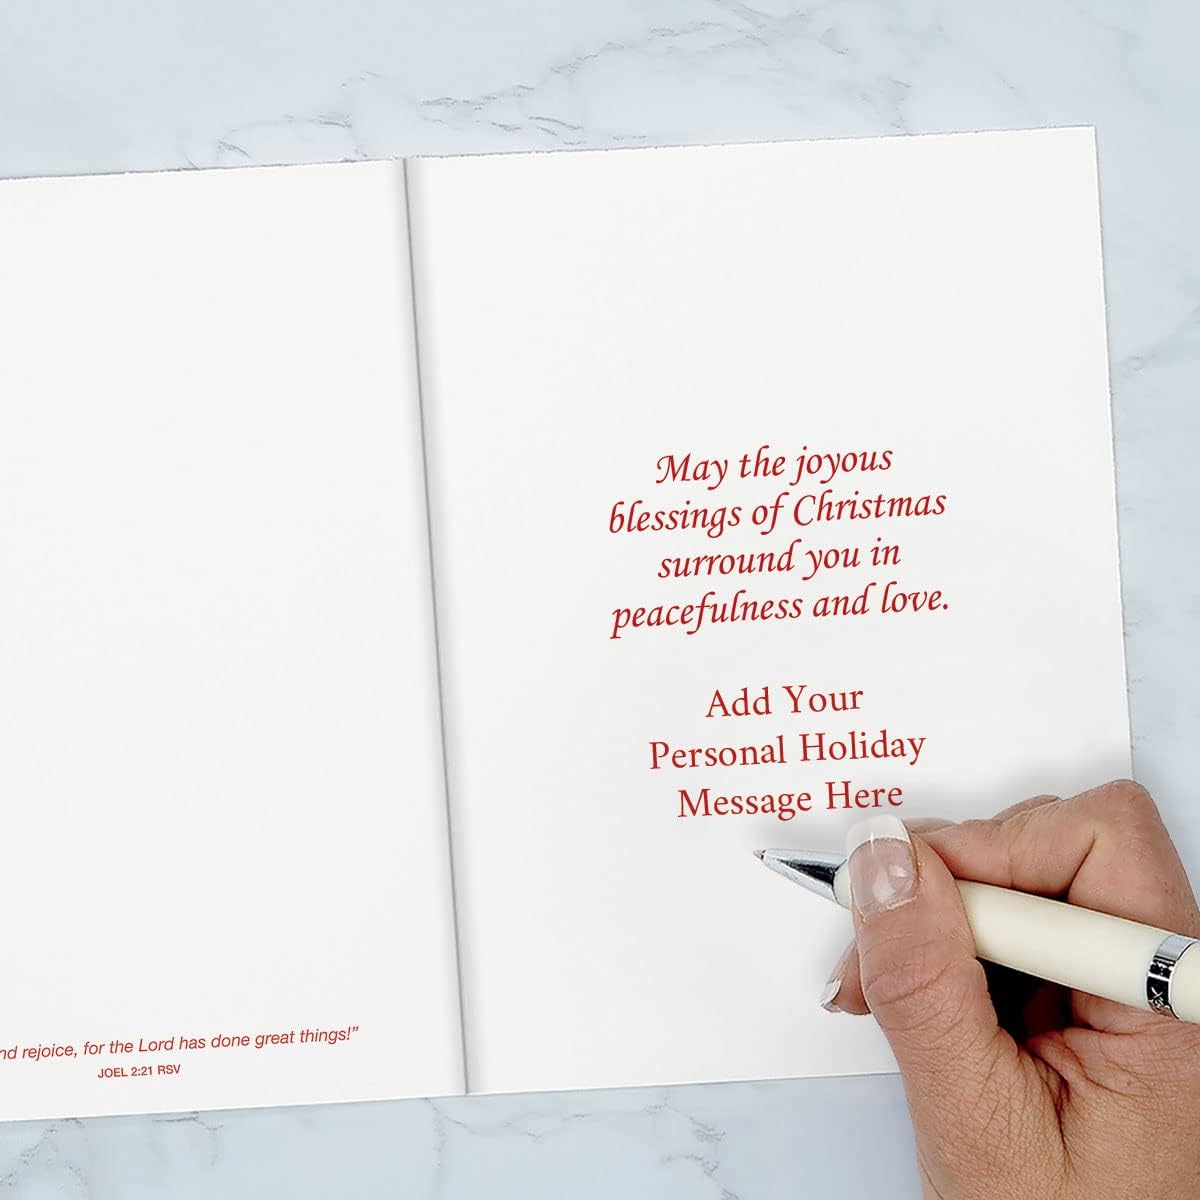 nd rejoice, for the Lord has done great things!”
JOEL 2:21 RSV
May the joyous
blessings of Christmas
surround you in
peacefulness and love.
Add Your
Personal Holiday
Message Here